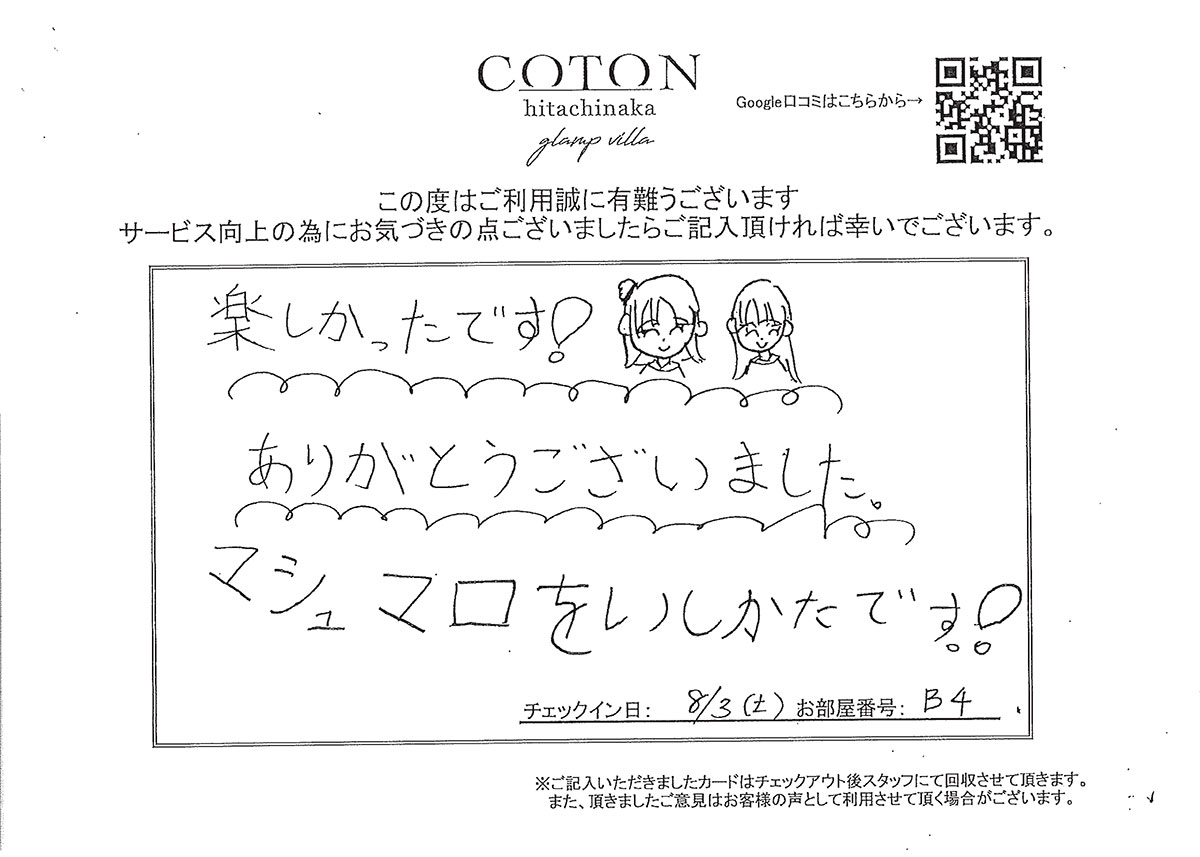 COTON
hitachinaka
glamp villa
Google口コミはこちらから→
この度はご利用誠に有難うございます
サービス向上の為にお気づきの点ございましたらご記入頂ければ幸いでございます。
楽しかったです!
ありがとうございました。
マシュマロをいしかたです!
チェックイン日: 8/3(土) お部屋番号: B4
※ご記入いただきましたカードはチェックアウト後スタッフにて回収させて頂きます。
また、頂きましたご意見はお客様の声として利用させて頂く場合がございます。